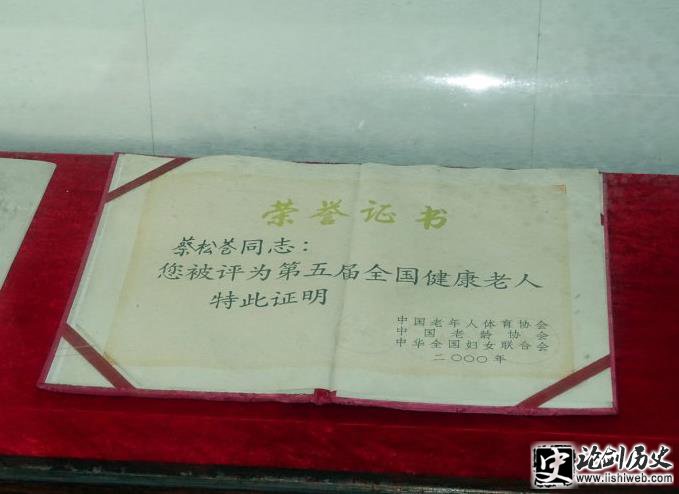 荣誉证书
蔡松荟同志：
您被评为第五届全国健康老人
特此证明
中国老年人体育协会
中国老龄协会
中华全国妇女联合会
二〇〇〇年
史 论剑历史
www.lishiweb.com